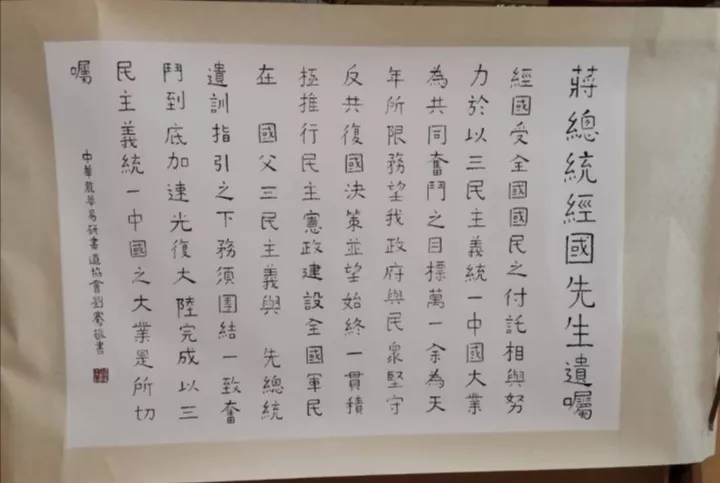 蔣總統經國先生遺囑
經國受全國國民之付託相與努
力於以三民主義統一中國大業
為共同奮鬥之目標萬一余為天
年所限務望我政府與民眾堅守
反共復國決策並望始終一貫積
極推行民主憲政建設全國軍民
在 國父三民主義與 先總統
遺訓指引之下務須團結一致奮
鬥到底加速光復大陸完成以三
民主義統一中國之大業是所切
囑
中華 學易研書道協會劉 敬書